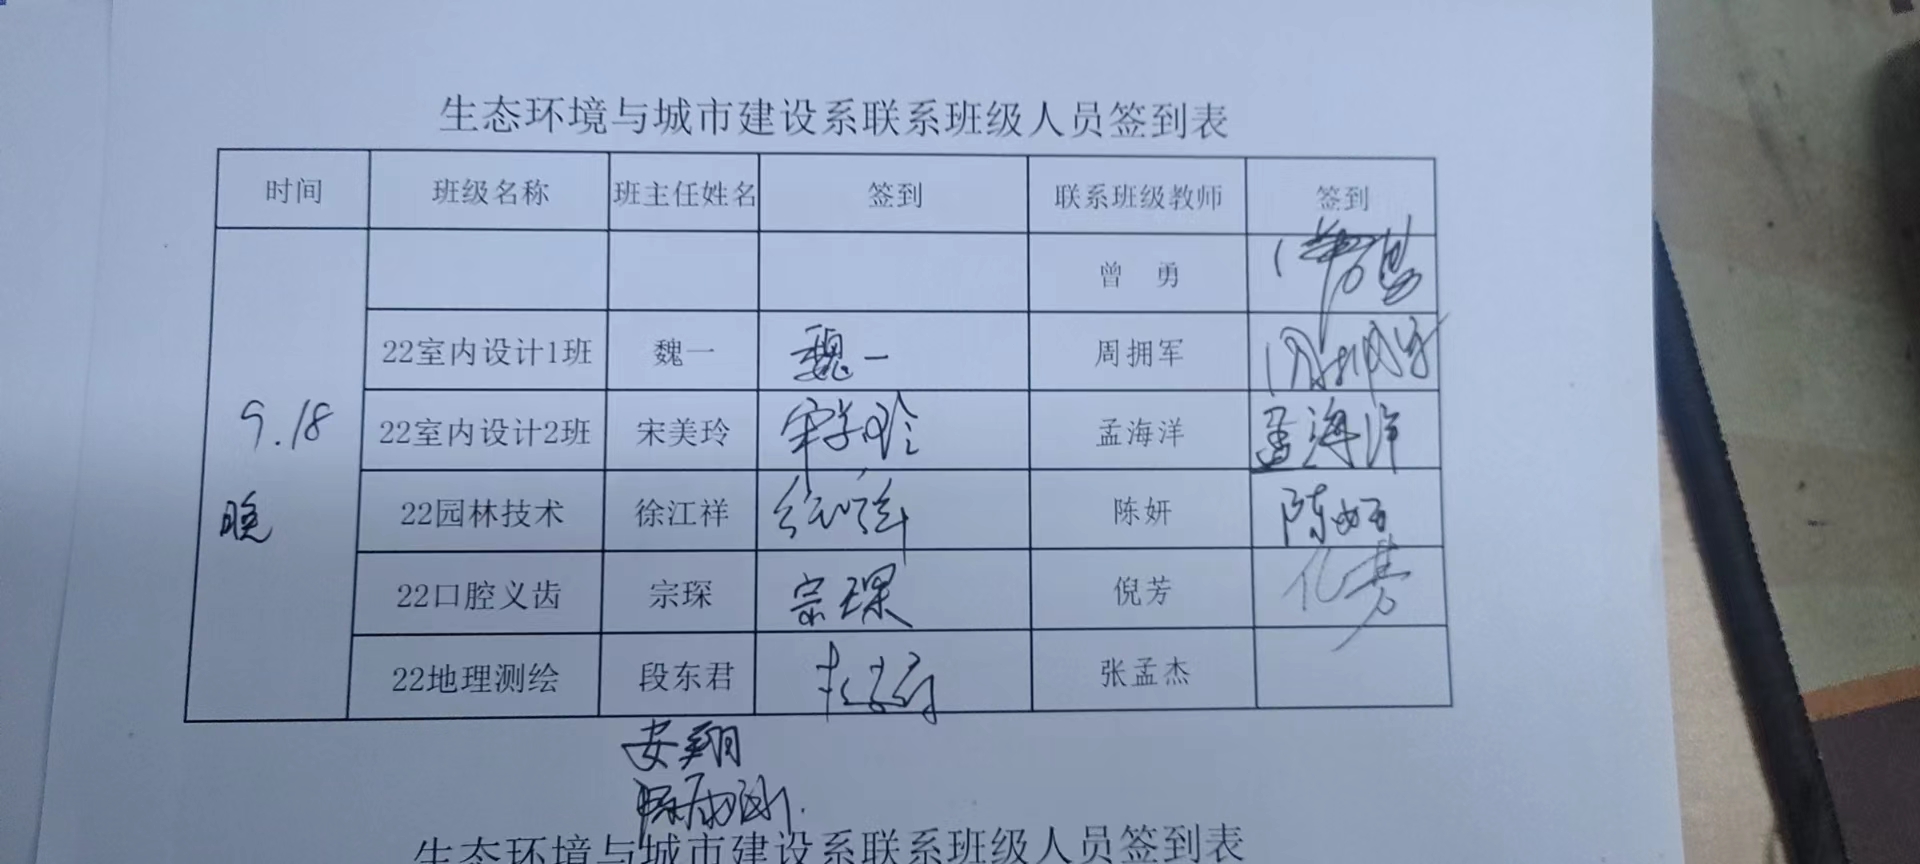 生态环境与城市建设系联系班级人员签到表
时间 班级名称 班主任姓名 签到 联系班级教师 签到
曾 勇
22室内设计1班 魏一 魏一 周拥军 周拥军
9.18 22室内设计2班 宋美玲 宋美玲 孟海洋 孟海洋
晚 22园林技术 徐江祥 陈妍 陈妍
22口腔义齿 宗琛 宗琛 倪芳
22地理测绘 段东君 张孟杰
安翔
生态环境与城市建设系联系班级人员签到表